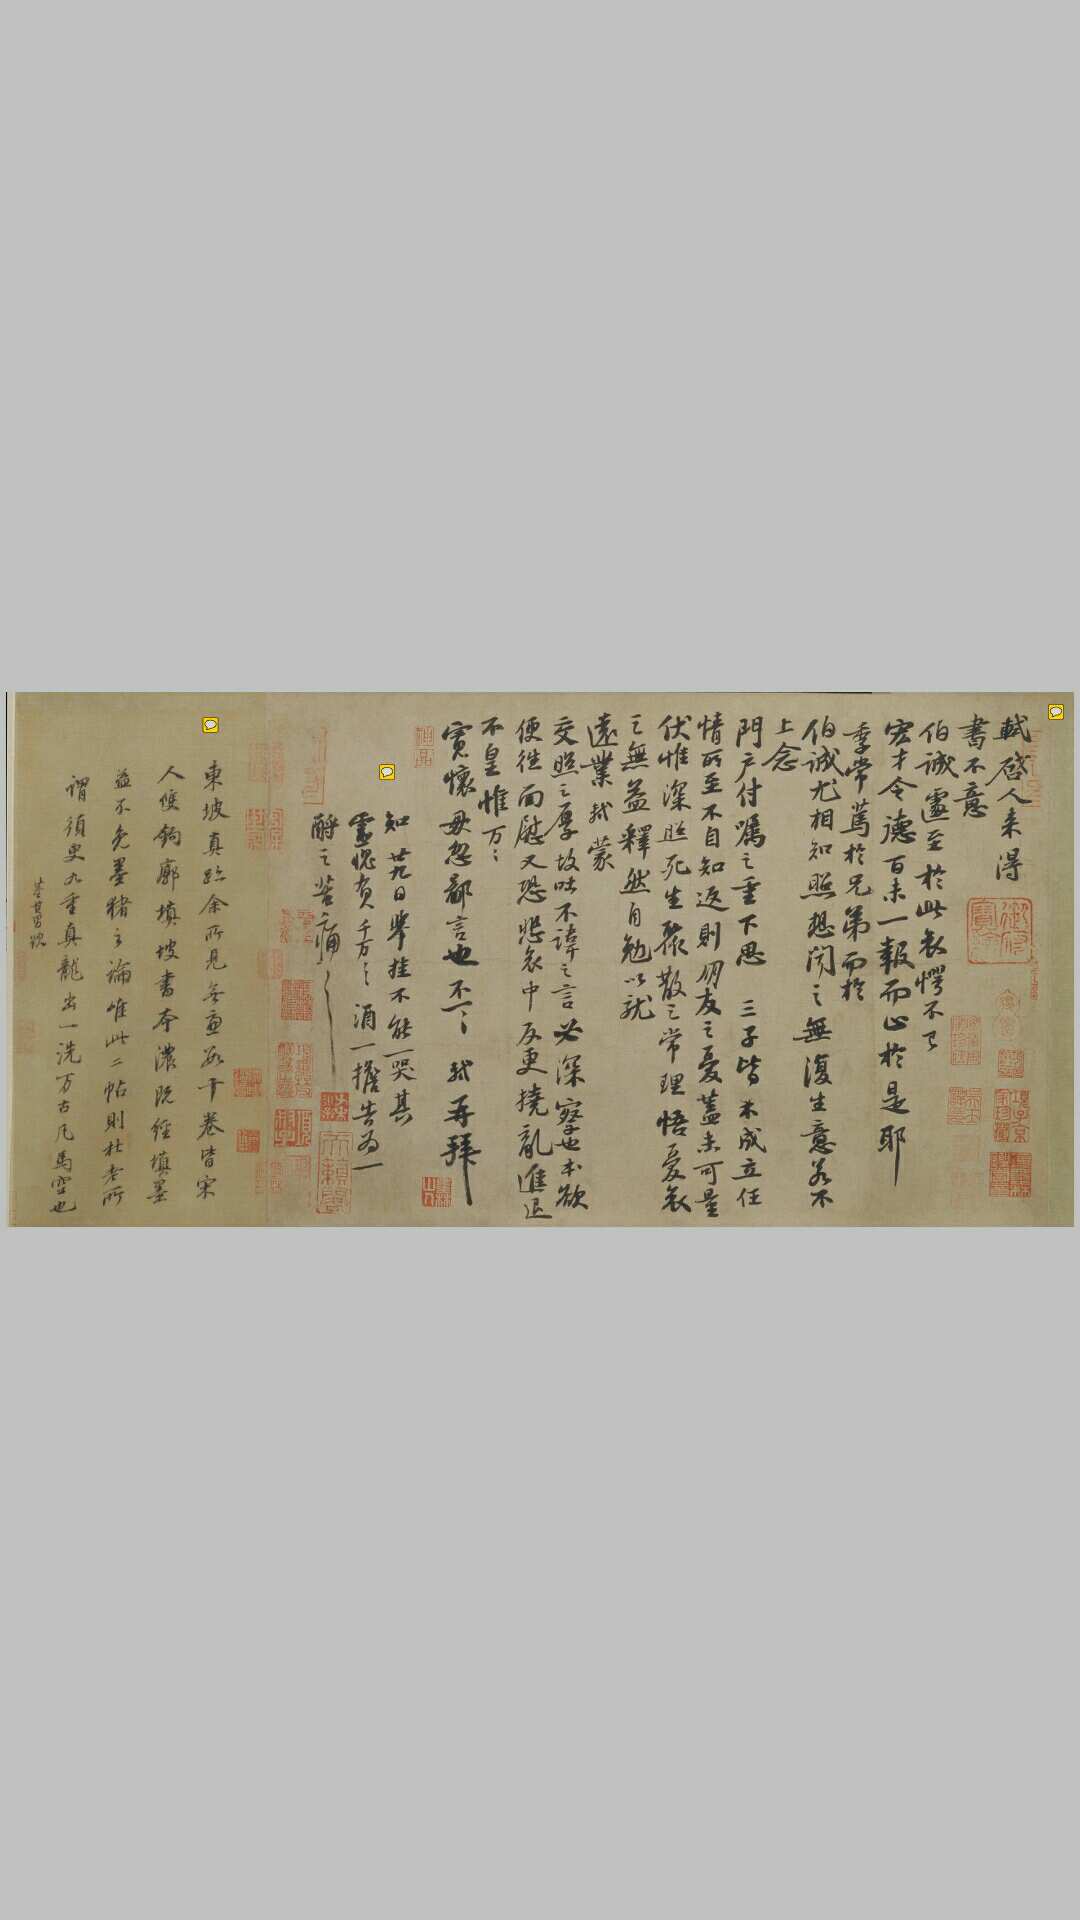 軾啓人来得
書不意
伯誠遽至於此哀愕不已
宏才令德百未一報而止於是耶
季常篤於兄弟而於
伯誠尤相知照想聞之無復生意若不
上念
門户付囑之重下思三子皆未成立任
情所至不自知返則朋友之憂蓋未可量
伏惟深照死生聚散之常理悟憂哀
之無益釋然自勉以就
遠業軾蒙
交照之厚故吐不諱之言必深察也本欲
便往面慰又恐悲哀中反更撓亂進退
不皇惟万〻
寬懷毋忽鄙言也不一〻軾再拜
知廿九日舉挂不能一哭其
靈愧負千万〻酒一擔告為一
酹之苦痛〻
東坡真跡余所見無慮數十卷皆宋
人雙鉤廓填坡書本濃既經填墨
益不免墨猪之論唯此二帖則杜老所
謂須臾九重真龍出一洗万古凡馬空也
董其昌跋